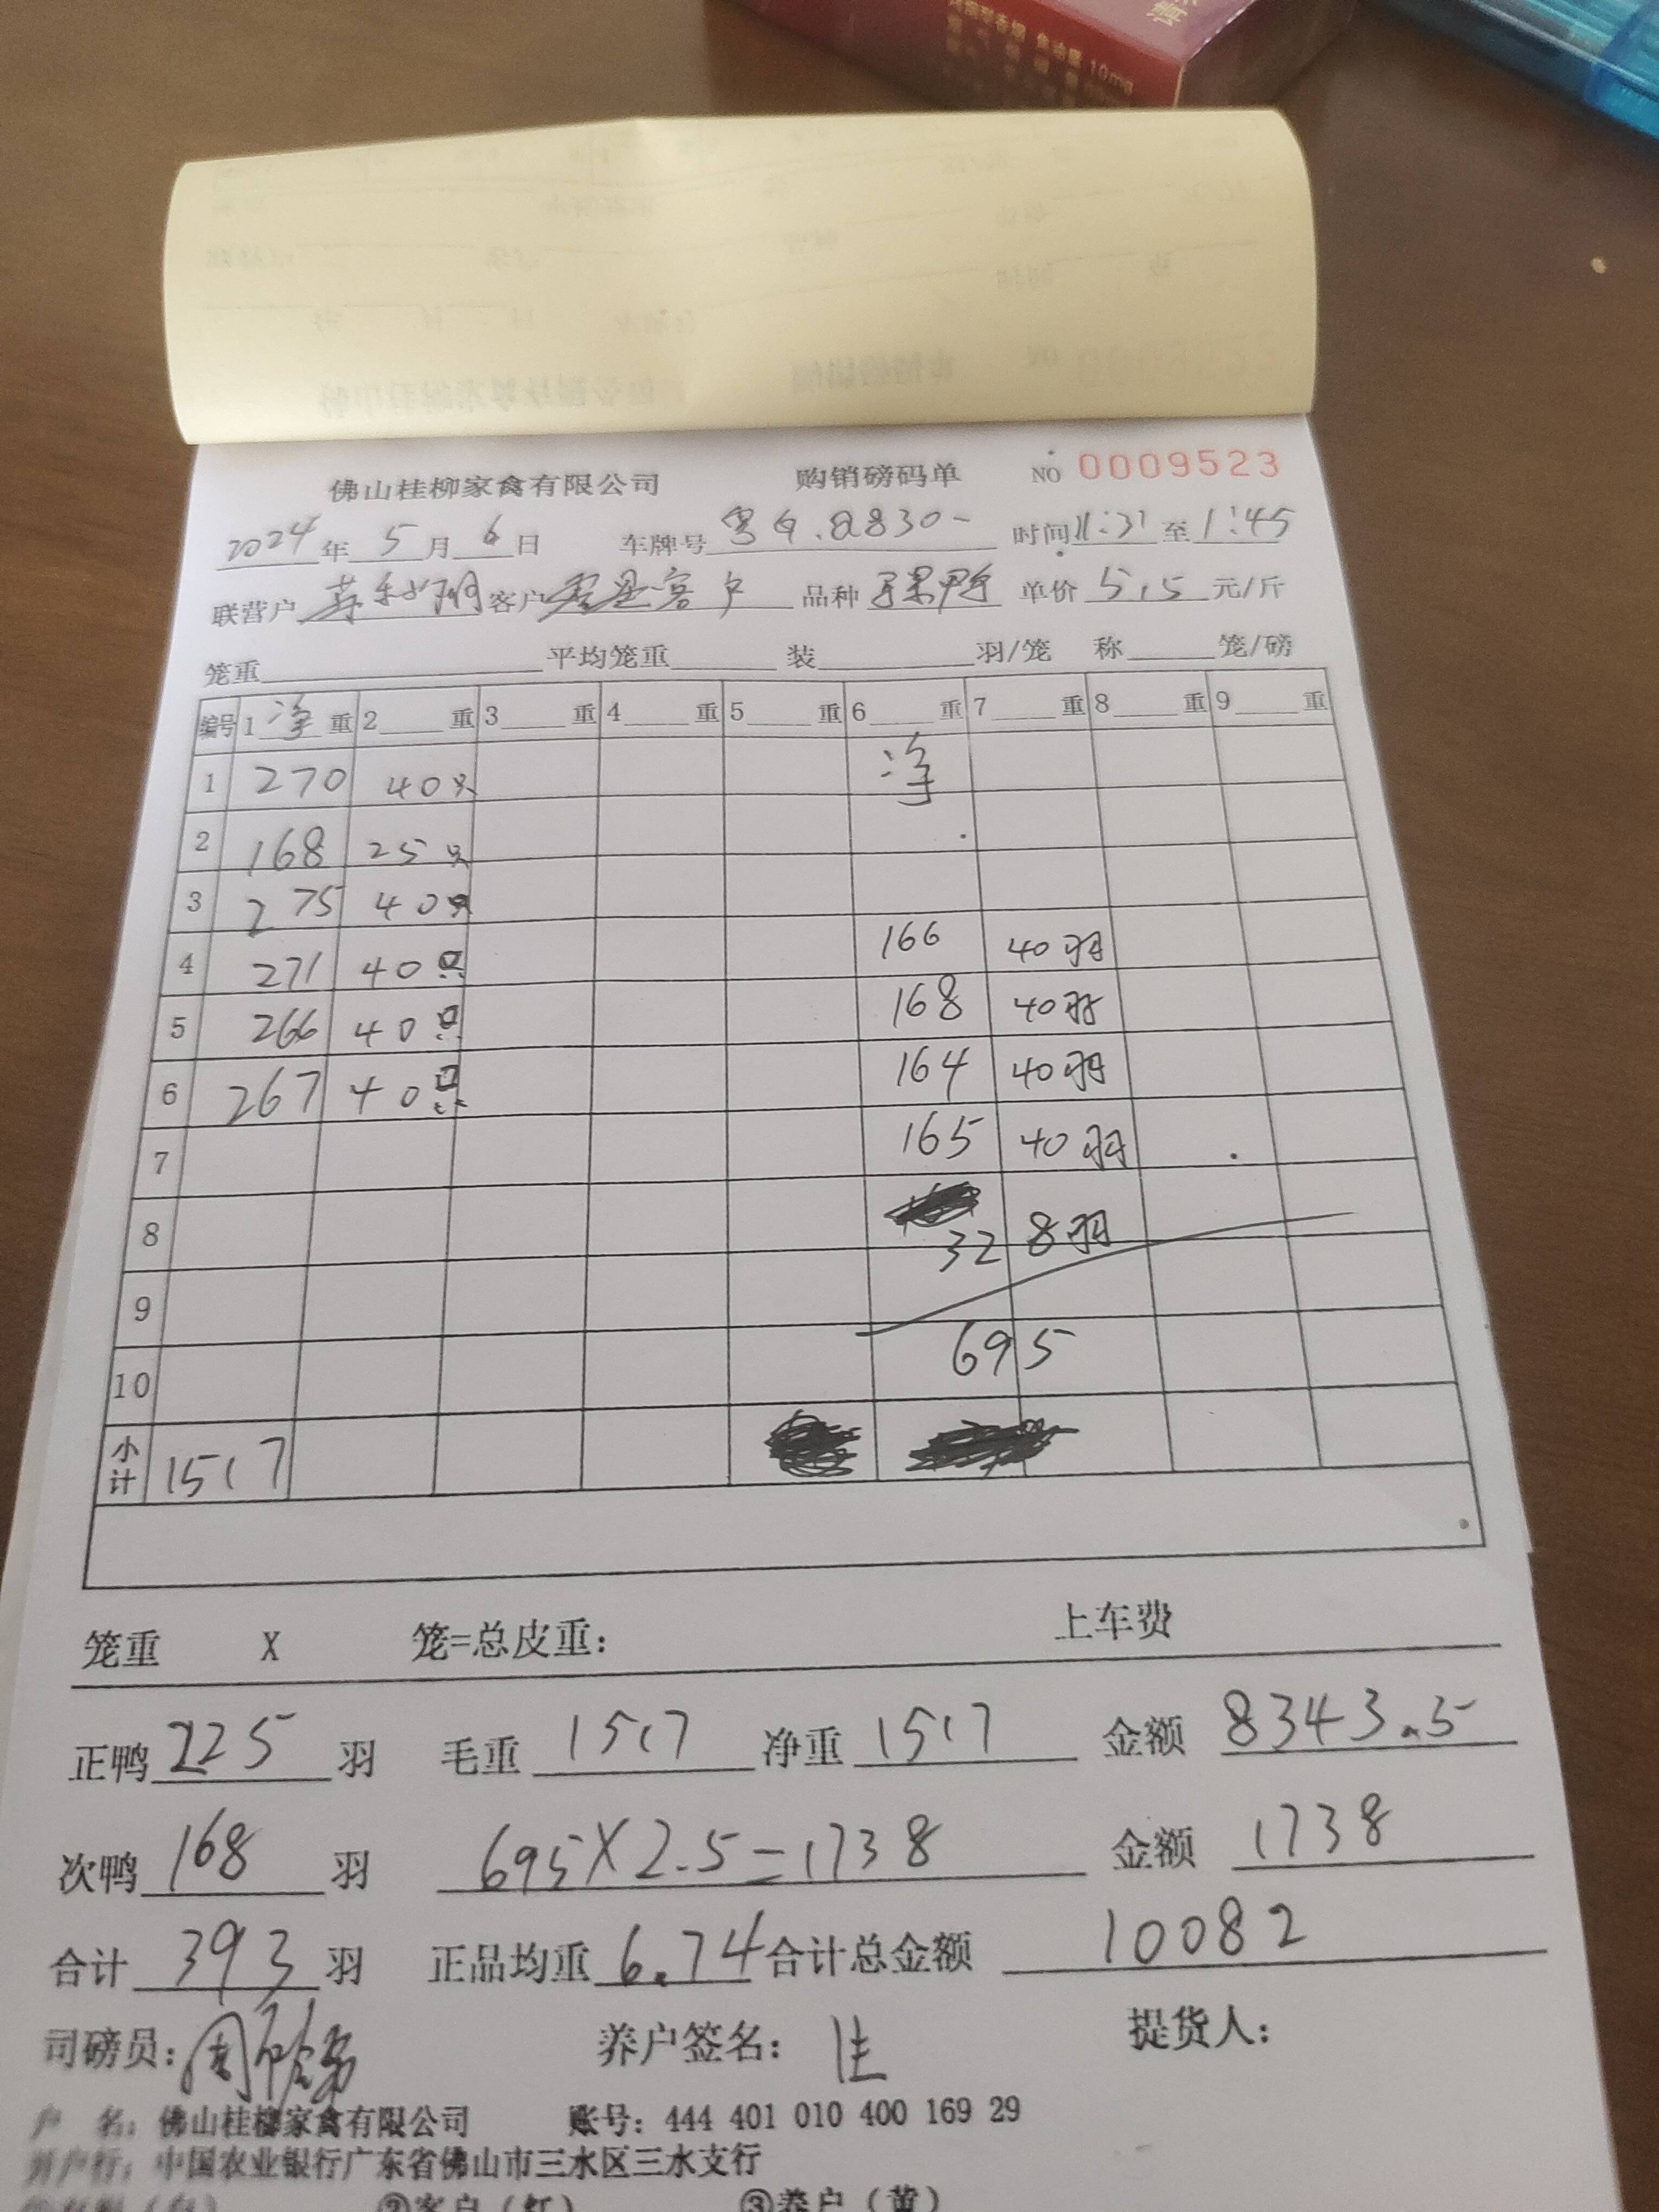 10mg
佛山桂柳家禽有限公司 购销磅码单 NO 0009523
2024年 5月 6日 车牌号 时间 至 1:45
联营户 客户 零星客户 品种 单价 5.5 元/斤
笼重 平均笼重 装 羽/笼 称 笼/磅
编号 1 净 重 2 重 3 重 4 重 5 重 6 重 7 重 8 重 9 重
1 270 40只 净
2 168 25只
3 275 40只
4 271 40只 166 40羽
5 266 40只 168 40羽
6 267 40只 164 40羽
7 165 40羽
8 32 8羽
9
10 695
小计 1517
笼重 X 笼=总皮重: 上车费
正鸭 225 羽 毛重 1517 净重 1517 金额 8343.5
次鸭 168 羽 695X2.5=1738 金额 1738
合计 393 羽 正品均重 6.74 合计总金额 10082
司磅员: 养户签名: 提货人:
户 名: 佛山桂柳家禽有限公司 账号: 444 401 010 400 169 29
开户行: 中国农业银行广东省佛山市三水区三水支行
②客户(红) ③养户(黄)